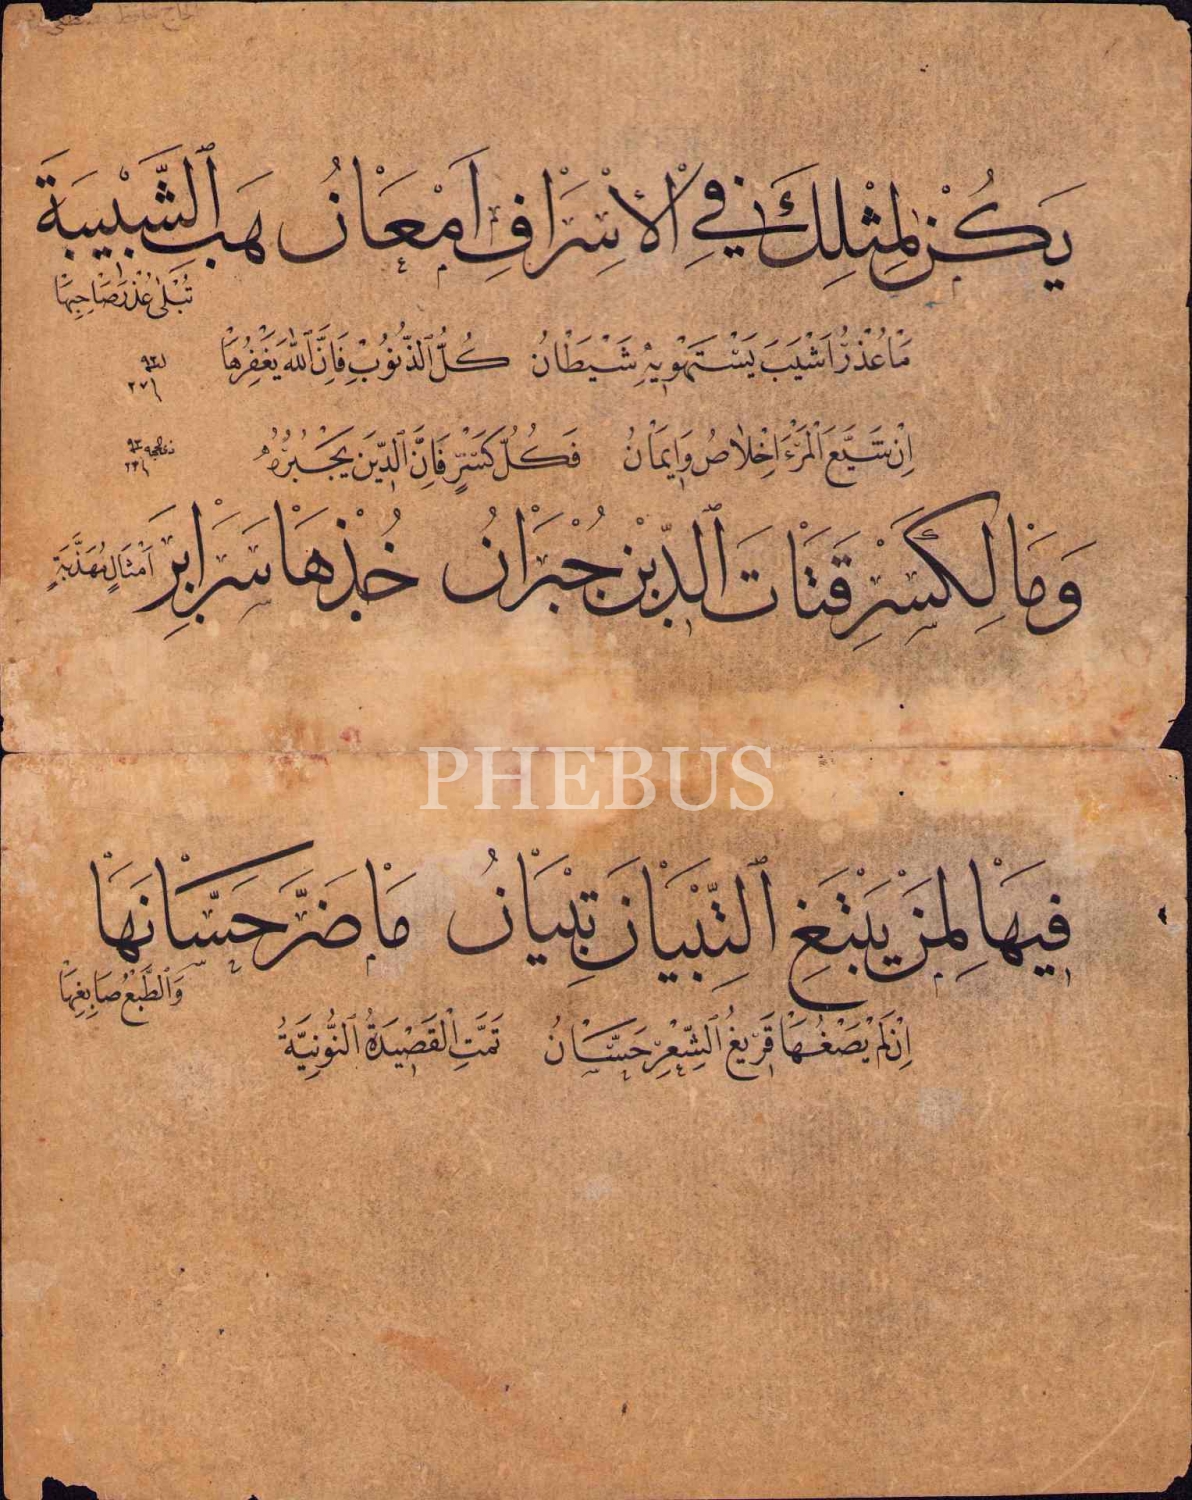 يَكُنْ لِمِثْلِكَ فِي الْاِسْرَافِ اِمْعَانُ هَبِ الشَّبِيبَةَ
تُبْلٰى عُذْرَ صَاحِبِهَا
مَا عُذْرُ اَشْيَبَ يَسْتَهْوِيهِ شَيْطَانُ كُلُّ الذُّنُوبِ فَاِنَّ اللّٰهَ يَغْفِرُهَا
اِنْ شَيَّعَ الْمَرْءَ اِخْلَاصُ وَاِيمَانُ فَكُلُّ كَسْرٍ فَاِنَّ الدِّينَ يَجْبُرُهُ
وَمَا لِكَسْرِ قَنَاتِ الدِّينِ جُبْرَانُ خُذْهَا سَرَايِرَ اَمْثَالٍ مُهَذَّبَةٍ
PHEBUS
فِيهَا لِمَنْ يَبْتَغِ التِّبْيَانَ تِبْيَانُ مَا ضَرَّ حَسَّانَهَا
وَالطَّبْعُ صَايِغُهَا
اِنْ لَمْ يَصُغْهَا قَرِيعُ الشِّعْرِ حَسَّانُ تَمَّتِ الْقَصِيدَةُ النُّونِيَّةُ